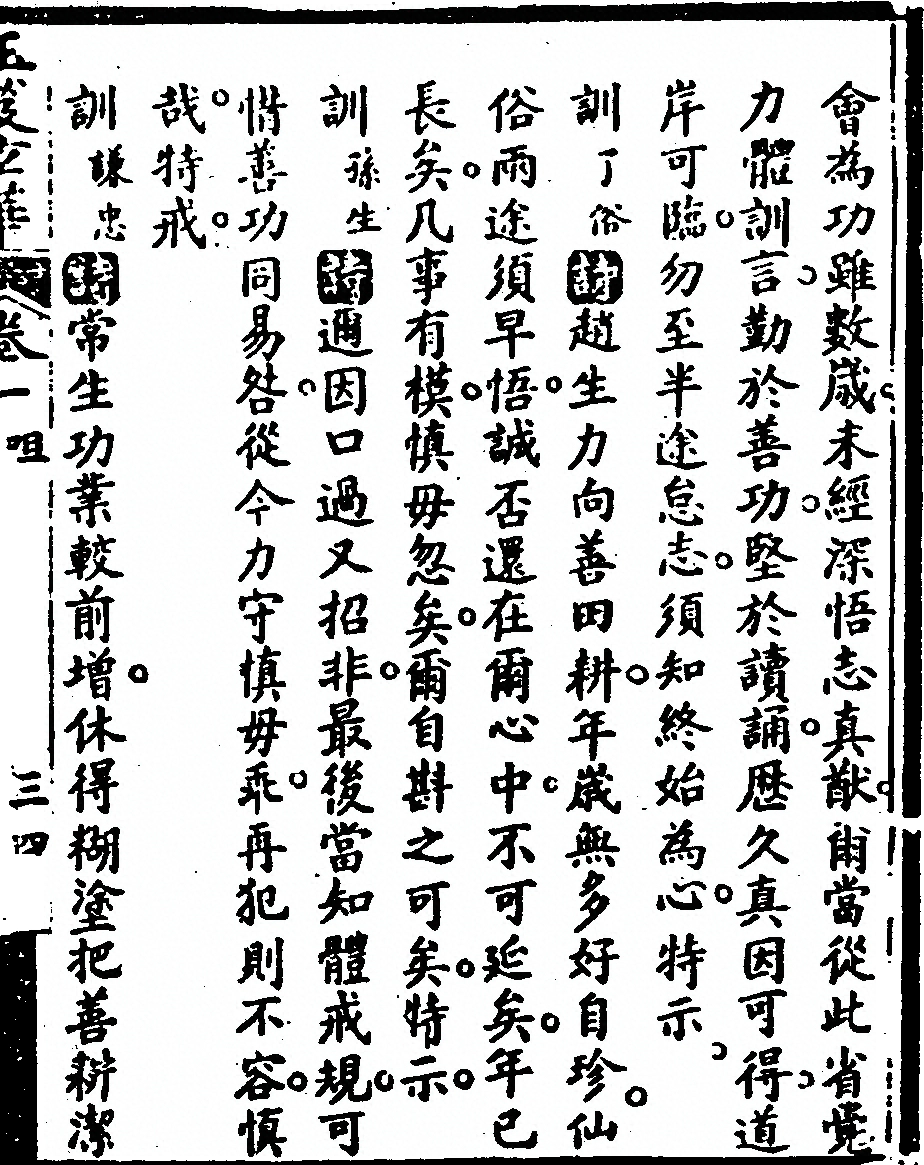 會為功雖數歲未經深悟志真猷爾當從此省覺
力體訓言勤於善功堅於讀誦歷久真因可得道
岸可臨勿至半途怠志須知終始為心特示
訓丁俗詩趙生力向善田耕年歲無多好自珍仙
俗兩途須早悟誠否還在爾心中不可延矣年已
長矣凡事有模慎毋忽矣爾自斟之可矣特示
訓孫生詩邇因口過又招非最後當知體戒規可
惜善功同易咎從今力守慎毋乖再犯則不容慎
哉特戒
訓謙忠詩常生功業較前增休得糊塗把善耕潔
卷一 咀 三四